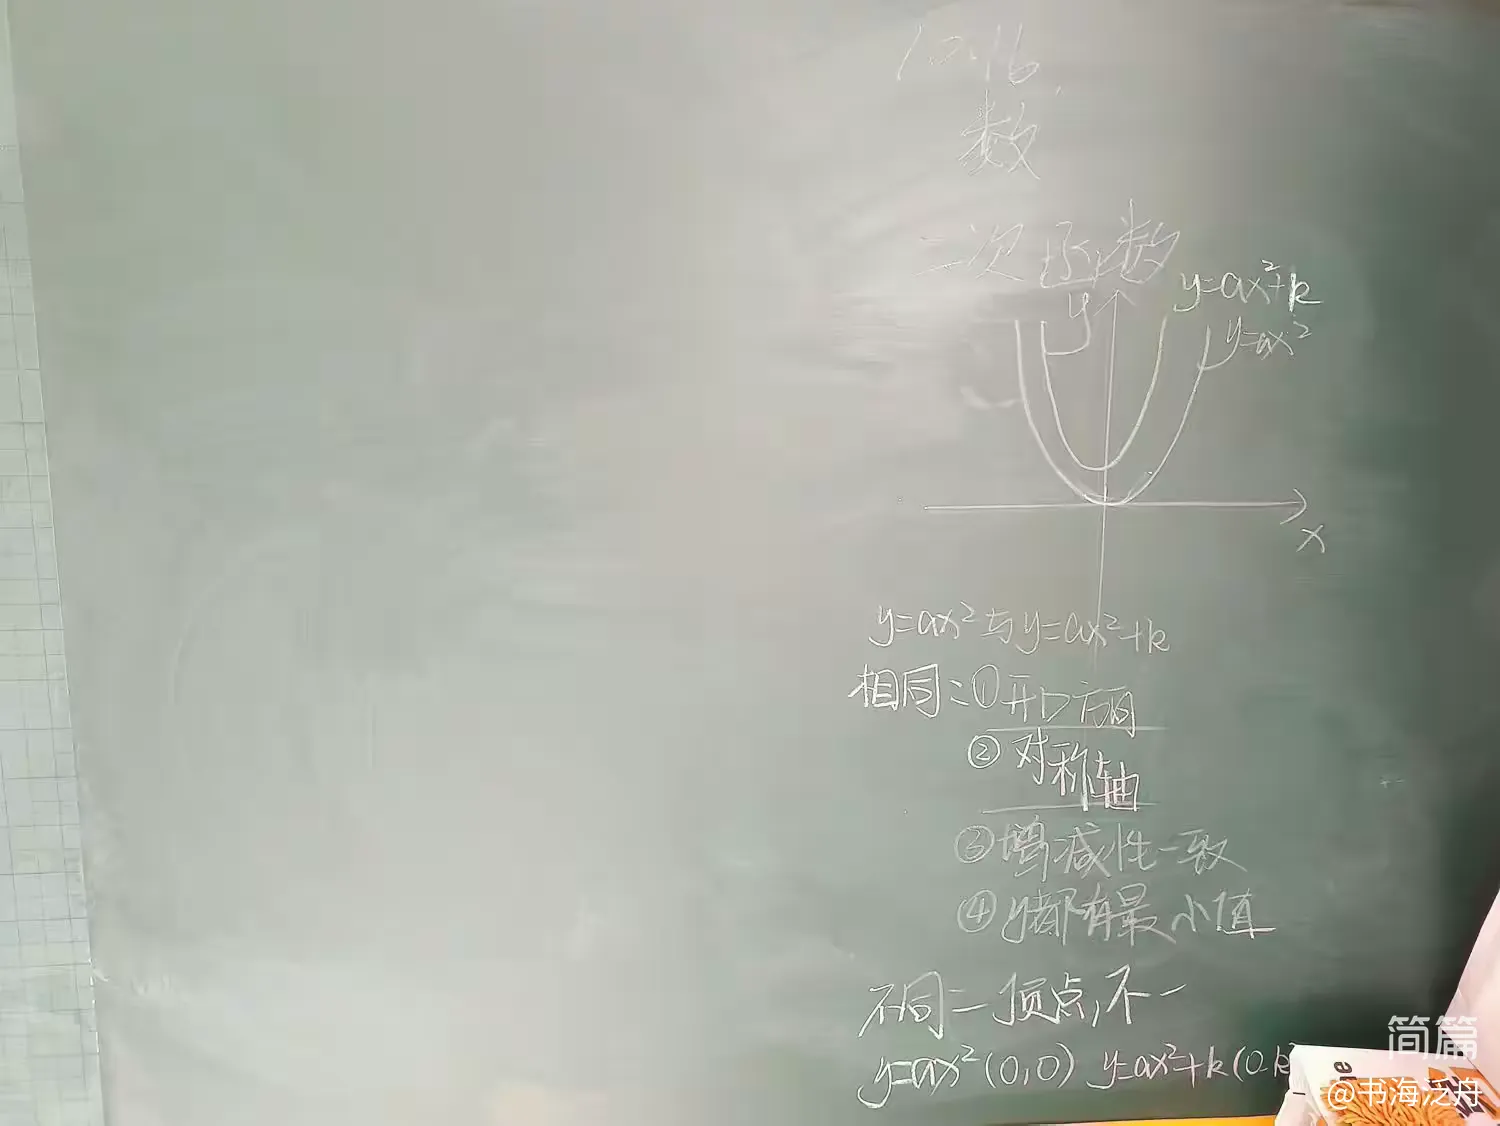 10.16
数
二次函数
y
y=ax²+k
y=ax²
x
y=ax²与y=ax²+k
相同：①开口方向
②对称轴
③增减性一致
④y都有最小值
不同：顶点,不一
y=ax²(0,0) y=ax²+k(0.k)
简篇
@书海泛舟